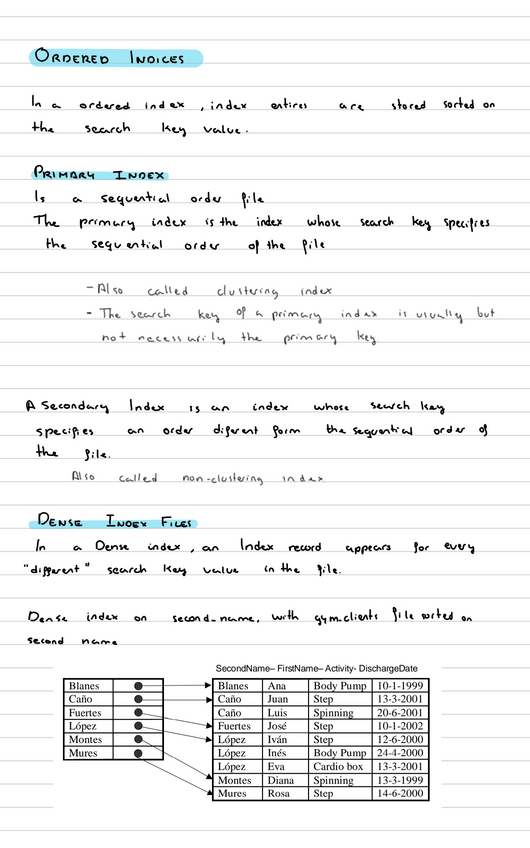 ORDERED INDICES
In a ordered index, index entires are stored sorted on
the search key value.
PRIMARY INDEX
Is a sequential order file
The primary index is the index whose search key specifies
the sequential order of the file
- Also called clustering index
- The search key of a primary index is usually but
not necessarily the primary key.
A Secondary Index is an index whose search key
specifies an order diferent form the sequential order of
the file.
Also called non-clustering index
DENSE INDEX FILES
In a Dense index, an Index record appears for every
"different" search key value in the file.
Dense index on second_name, with gym_clients file sorted on
second name
SecondName– FirstName– Activity- DischargeDate
Blanes Blanes Ana Body Pump 10-1-1999
Caño Caño Juan Step 13-3-2001
Fuertes Caño Luis Spinning 20-6-2001
López Fuertes José Step 10-1-2002
Montes López Iván Step 12-6-2000
Mures López Inés Body Pump 24-4-2000
López Eva Cardio box 13-3-2001
Montes Diana Spinning 13-3-1999
Mures Rosa Step 14-6-2000